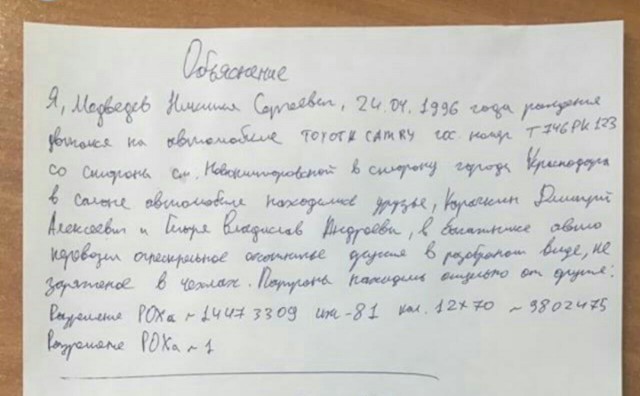 Объяснение
Я, Медведев Никита Сергеевич, 24.04.1996 года рождения
двигался на автомобиле TOYOTA CAMRY гос. номер Т746РК123
со стороны ст. Новотитаровской в сторону города Краснодара
в салоне автомобиля находились друзья, Карачкин Дмитрий
Алексеевич и Владислав Андреевич, в багажнике авто
перевозил огнестрельное охотничье оружие в разобраном виде, не
заряженое в чехлах. Патроны находились отдельно от оружия.
Разрешение РОХа №14473309 иж-81 кал. 12х70 №9802475
Разрешение РОХа №1